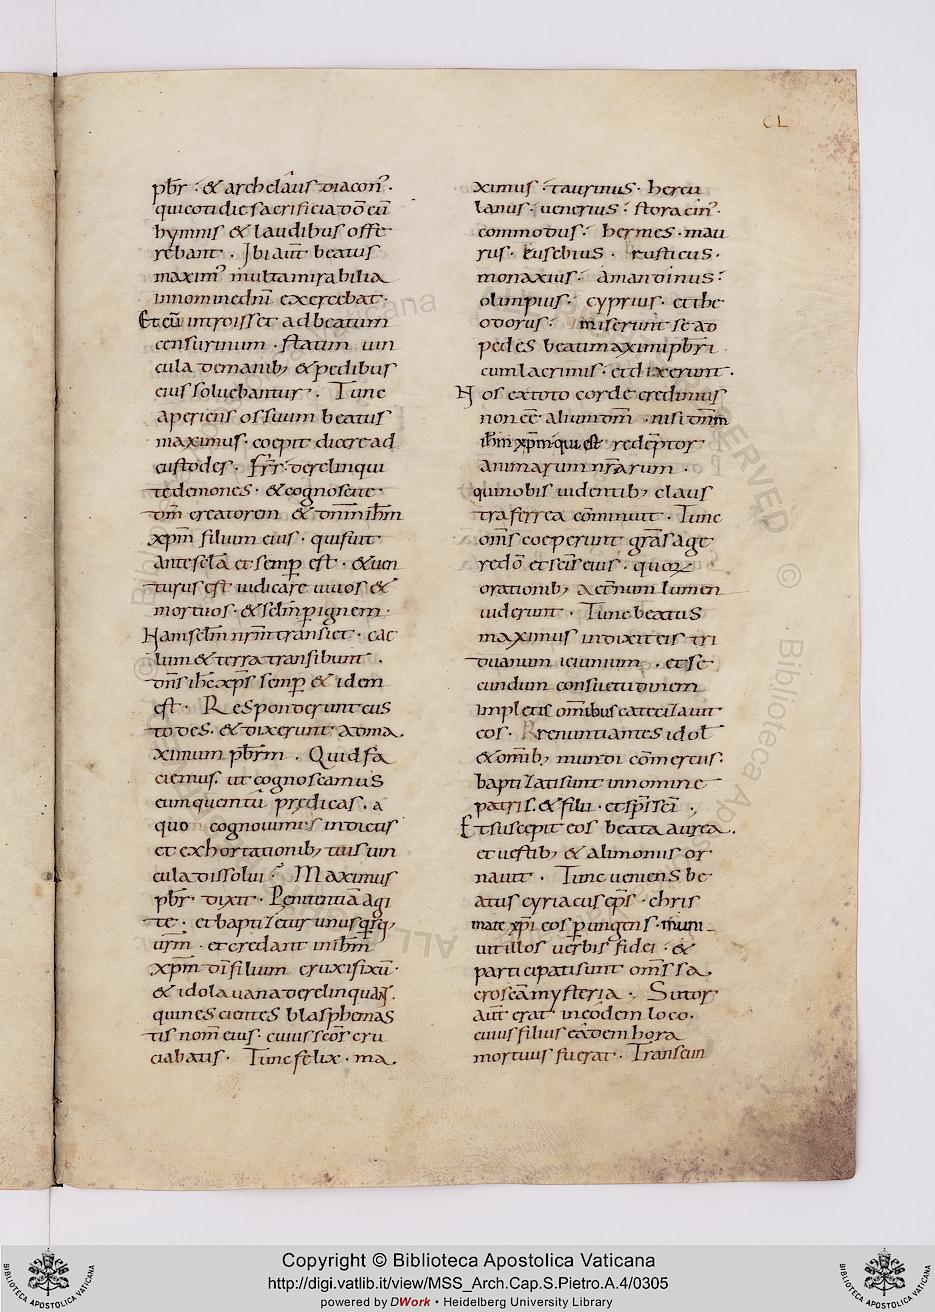 CL
pbr̄ · & archelaus diacon᾿ ·
qui cotidie sacrificia dō cū
hymnis & laudibus offe
rebant · Ibi aūt beatus
maxim᾿ multa mirabilia
in nomine dnī exercebat ·
Et cū introisset ad beatum
censurinum · statim uin
cula de manib; & pedibus
eius soluebantur · Tunc
aperiens os suum beatus
maximus · coepit dicere ad
custodes · Fr̄r · derelinqui
te demones · & cognoscite ·
dm̄ creatorem & dnm̄ ihm̄
xpm̄ filium eius · qui fuit
ante sclā et semp̄ est · & uen
turus est iudicare uiuos &
mortuos · & sclm̄ p̄ ignem ·
Nam sclm̄ nrm̄ transiet · cae
lum & terra transibunt ·
dns̄ ihc̄ xps̄ semp̄ & idem
est · Responderunt cus
todes · & dixerunt ad ma
ximum pbrm̄ · Quid fa
ciemus · ut cognoscamus
eum quem tū prędicas · a
quo cognouimus in dictis
et exhortationib; tuis uin
cula dissolui · Maximus
pbr̄ dixit · Penitentiā agi
te · et baptizetur unusq̄sq;
urm̄ · et credant in ihm̄
xpm̄ dī filium cruxifixū ·
& idola uana derelinquant ·
qui nescientes blasphemas
tis nom̄ eius · cuius scōs cru
ciabatis · Tunc felix · ma
ximus · taurinus · hercu
lanus · uenerius · storacin᾿ ·
commodus · hermes · mau
rus · Eusebius · Rusticus ·
monaxius · amandinus ·
olimpius · cyprius · et the
odorus · miserunt se ad
pedes beati maximi pbr̄i
cum lacrimis · et dixerunt ·
Nos ex toto corde credimus
non eē alium dm̄ · nisi dnm̄
ihm̄ xpm̄ · qui est redemptor
animarum nrārum ·
qui nobis uidentib; clauis
tra ferrea cōminuit · Tunc
oms̄ coeperunt grās age
re dō et scīs eius · quorum
orationib; aet̄num lumen
uiderunt · Tunc beatus
maximus indixit eis tri
duanum ieiunium · et se
cundum consuetudinem
impletis omnibus catecizauit
eos · Rrenuntiantes idol
& omib; mundi cōmercus ·
baptizati sunt in nomine
patris · & filii · et sps̄ scī ·
Et suscepit eos beata aurea ·
et uestib; & alimoniis or
nauit · Tunc ueniens be
atus cyriacus eps̄ · chris
mate xpī eos p̄ungens · muni
uit illos uerbis fidei · &
participati sunt oms̄ sa
crosca mysteria · Sutor
aūt erat in eodem loco ·
cuius filius eadem hora
mortuus fuerat · Transeun
Copyright © Biblioteca Apostolica Vaticana
http://digi.vatlib.it/view/MSS_Arch.Cap.S.Pietro.A.4/0305
powered by DWork • Heidelberg University Library